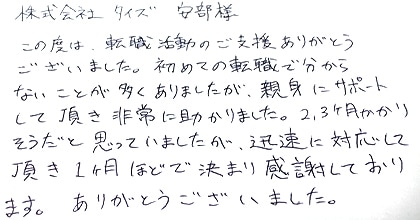 株式会社 タイズ 安部様
この度は、転職活動のご支援ありがとう
ございました。初めての転職で分から
ないことが多くありましたが、親身にサポート
して頂き非常に助かりました。2,3ヶ月かかり
そうだと思っていましたが、迅速に対応して
頂き1ヶ月ほどで決まり感謝しており
ます。ありがとうございました。